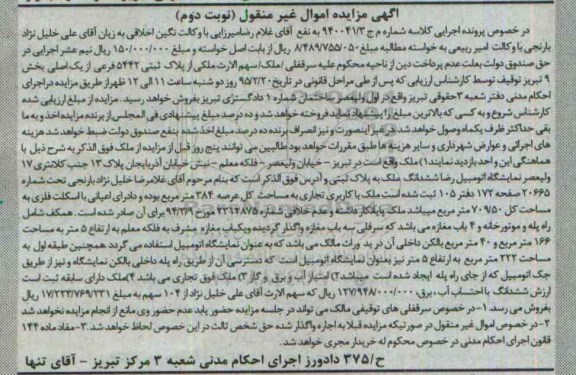 آگهی مزایده اموال غیر منقول (نوبت دوم)
در خصوص پرونده اجرایی کلاسه شماره م ج ۹۴۰۰۴۱/۳ به نفع آقای غلام رضامیرزایی با وکالت نگین اخلاقی به زیان آقای علی خلیل نژاد
بارنجی با وکالت امیر ربیعی به خواسته مطالبه مبلغ ۸/۴۸۹/۷۵۵/۰۵۰ ریال از بابت اصل خواسته و مبلغ ۱۵۰/۰۰۰/۰۰۰ ریال نیم عشر اجرایی در
حق صندوق دولت بعلت عدم پرداخت دین از ناحیه محکوم علیه سرقفلی /ملک/سهم الارث ملکی از پلاک ثبتی ۵۴۴۲ فرعی از یک اصلی بخش
۹ تبریز توقیف توسط کارشناس ارزیابی که پس از طی مراحل قانونی در تاریخ ۹۵/۲/۲۰ روز دو شنبه ساعت ۱۱ الی ۱۲ ظهر از طریق مزایده در اجرای
احکام مدنی دفتر شعبه ۳حقوقی تبریز واقع در اول ولیعصر ساختمان شماره ۱ دادگستری تبریز بفروش خواهد رسید. مزایده از مبلغ ارزیابی شده
کارشناس شروع و به کسی که بالاترین مبلغ را پیشنهاد نماید فروخته خواهد شد و ده درصد مبلغ پیشنهادی فی المجلس از برنده مزایده اخذ و به ما
بقی حداکثر ظرف یکماه وصول خواهد شد در غیر اینصورت و نیز انصراف برنده ده درصد مبلغ اخذ شده بنفع صندوق دولت ضبط خواهد شد هزینه
های اجرائی و عوارض شهرداری و سایر هزینه ها طبق مقررات خواهد بود طالبین می توانند پنج روز قبل از مزایده از ملک فوق الذکر به شرح ذیل با
هماهنگی این واحد بازدید نمایند ۱) ملک واقع است در تبریز - خیابان ولیعصر - فلکه معلم - نبش خیابان آذربایجان پلاک ۱۳ جنب کلانتری ۱۷
ولیعصر نمایشگاه اتومبیل رضا ششدانگ ملک به پلاک ثبتی و آدرس فوق الذکر است که بنام مرحوم آقای غلامرضا خلیل نژاد بارنجی تحت شماره
۲۰۶۶۵ صفحه ۱۷۲ دفتر ۱۰۵ ثبت شده است ملک با کاربری تجاری به مساحت کل عرصه ۳۸۴ متر مربع بوده و دارای اعیانی با اسکلت فلزی به
مساحت کل ۷۰۹/۵۰ متر مربع میباشد ملک پایانکار داشته و عدم خلافی شماره ۲۳۱۲۸۷۵ مورخ ۹۴/۳/۹ برای آن صادر شده است. همکف شامل
راه پله و موتورخانه و ۴ باب مغازه می باشد که سرقفلی سه باب مغازه واگذار گردیده ویکباب مغازه مشرف به فلکه معلم به ارتفاع ۵ متر به مساحت
۱۶۶ متر مربع و ۴۰ متر مربع بالکن داخلی آن در ید وراث مالک می باشد که به عنوان نمایشگاه اتومبیل استفاده می گردد همچنین طبقه اول به
مساحت ۲۲۲ متر مربع به ارتفاع ۵ متر نیز بعنوان نمایشگاه اتومبیل است که دسترسی آن از طریق راه پله داخلی بالکن نمایشگاه و نیز از طریق
جک اتومبیل که از جای راه پله ایجاد شده است میباشد ۳) امتیاز آب و برق و گاز ۳) ملک فوق تجاری می باشد ۴)ملک دارای سابقه ثبت است
ارزش ششدانگ با احتساب آب ،برق، ۱۲۷/۹۴۸/۰۰۰/۰۰۰ ریال که سهم الارث آقای علی خلیل نژاد از ۱۰۴ سهم به مبلغ ۱۷/۲۲۳/۷۶۹/۲۳۱ ریال
بفروش می رسد. ۱- در خصوص سرقفلی های توقیفی مالک می تواند در جلسه مزایده حضور یابد عدم حضور وی مانع از انجام مزایده نخواهد شد
۲- در خصوص اموال غیر منقول در صورتیکه مزایده قبلا به اجاره واگذار شده حق شخص ثالث در این خصوص لحاظ خواهد شد. ۳- مفاد ماده ۱۴۴
قانون اجرای احکام مدنی در خصوص محکوم له خریدار مجری خواهد شد.
ح/۳۷۵ دادورز اجرای احکام مدنی شعبه ۳ مرکز تبریز - آقای تنها